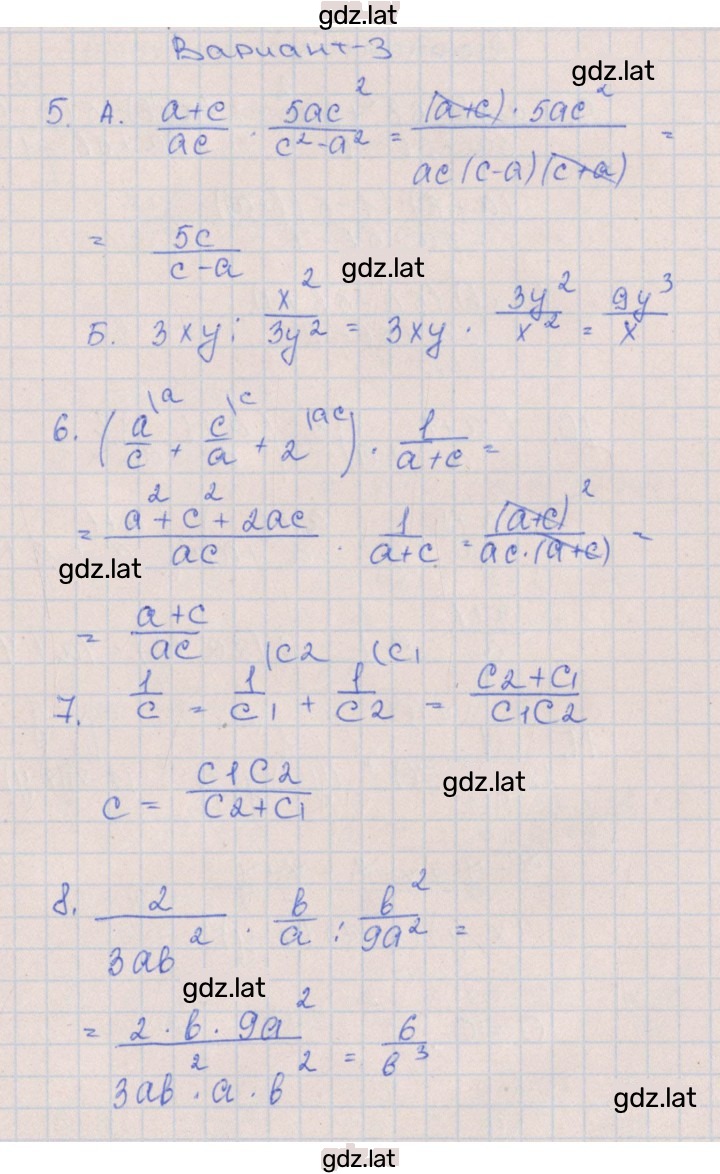 gdz.lat
Вариант-3
gdz.lat
5. А. (a+c)/(ac) · 5ac²/(c²-a²) = ((a+c) · 5ac²)/(ac(c-a)(c+a)) =
= 5c/(c-a)
gdz.lat
Б. 3xy : x²/(3y²) = 3xy · 3y²/x² = 9y³/x
6. (a/c \a + c/a \c + 2 \ac) · 1/(a+c) =
= (a²+c²+2ac)/(ac) · 1/(a+c) = (a+c)²/(ac·(a+c)) =
gdz.lat
= (a+c)/(ac)
7. 1/c = 1/C1 \C2 + 1/C2 \C1 = (C2+C1)/(C1C2)
c = (C1C2)/(C2+C1)
gdz.lat
8. 2/(3ab²) · b/a : b²/(9a²) =
gdz.lat
= (2·b·9a²)/(3ab²·a·b²) = 6/b³
gdz.lat
gdz.lat